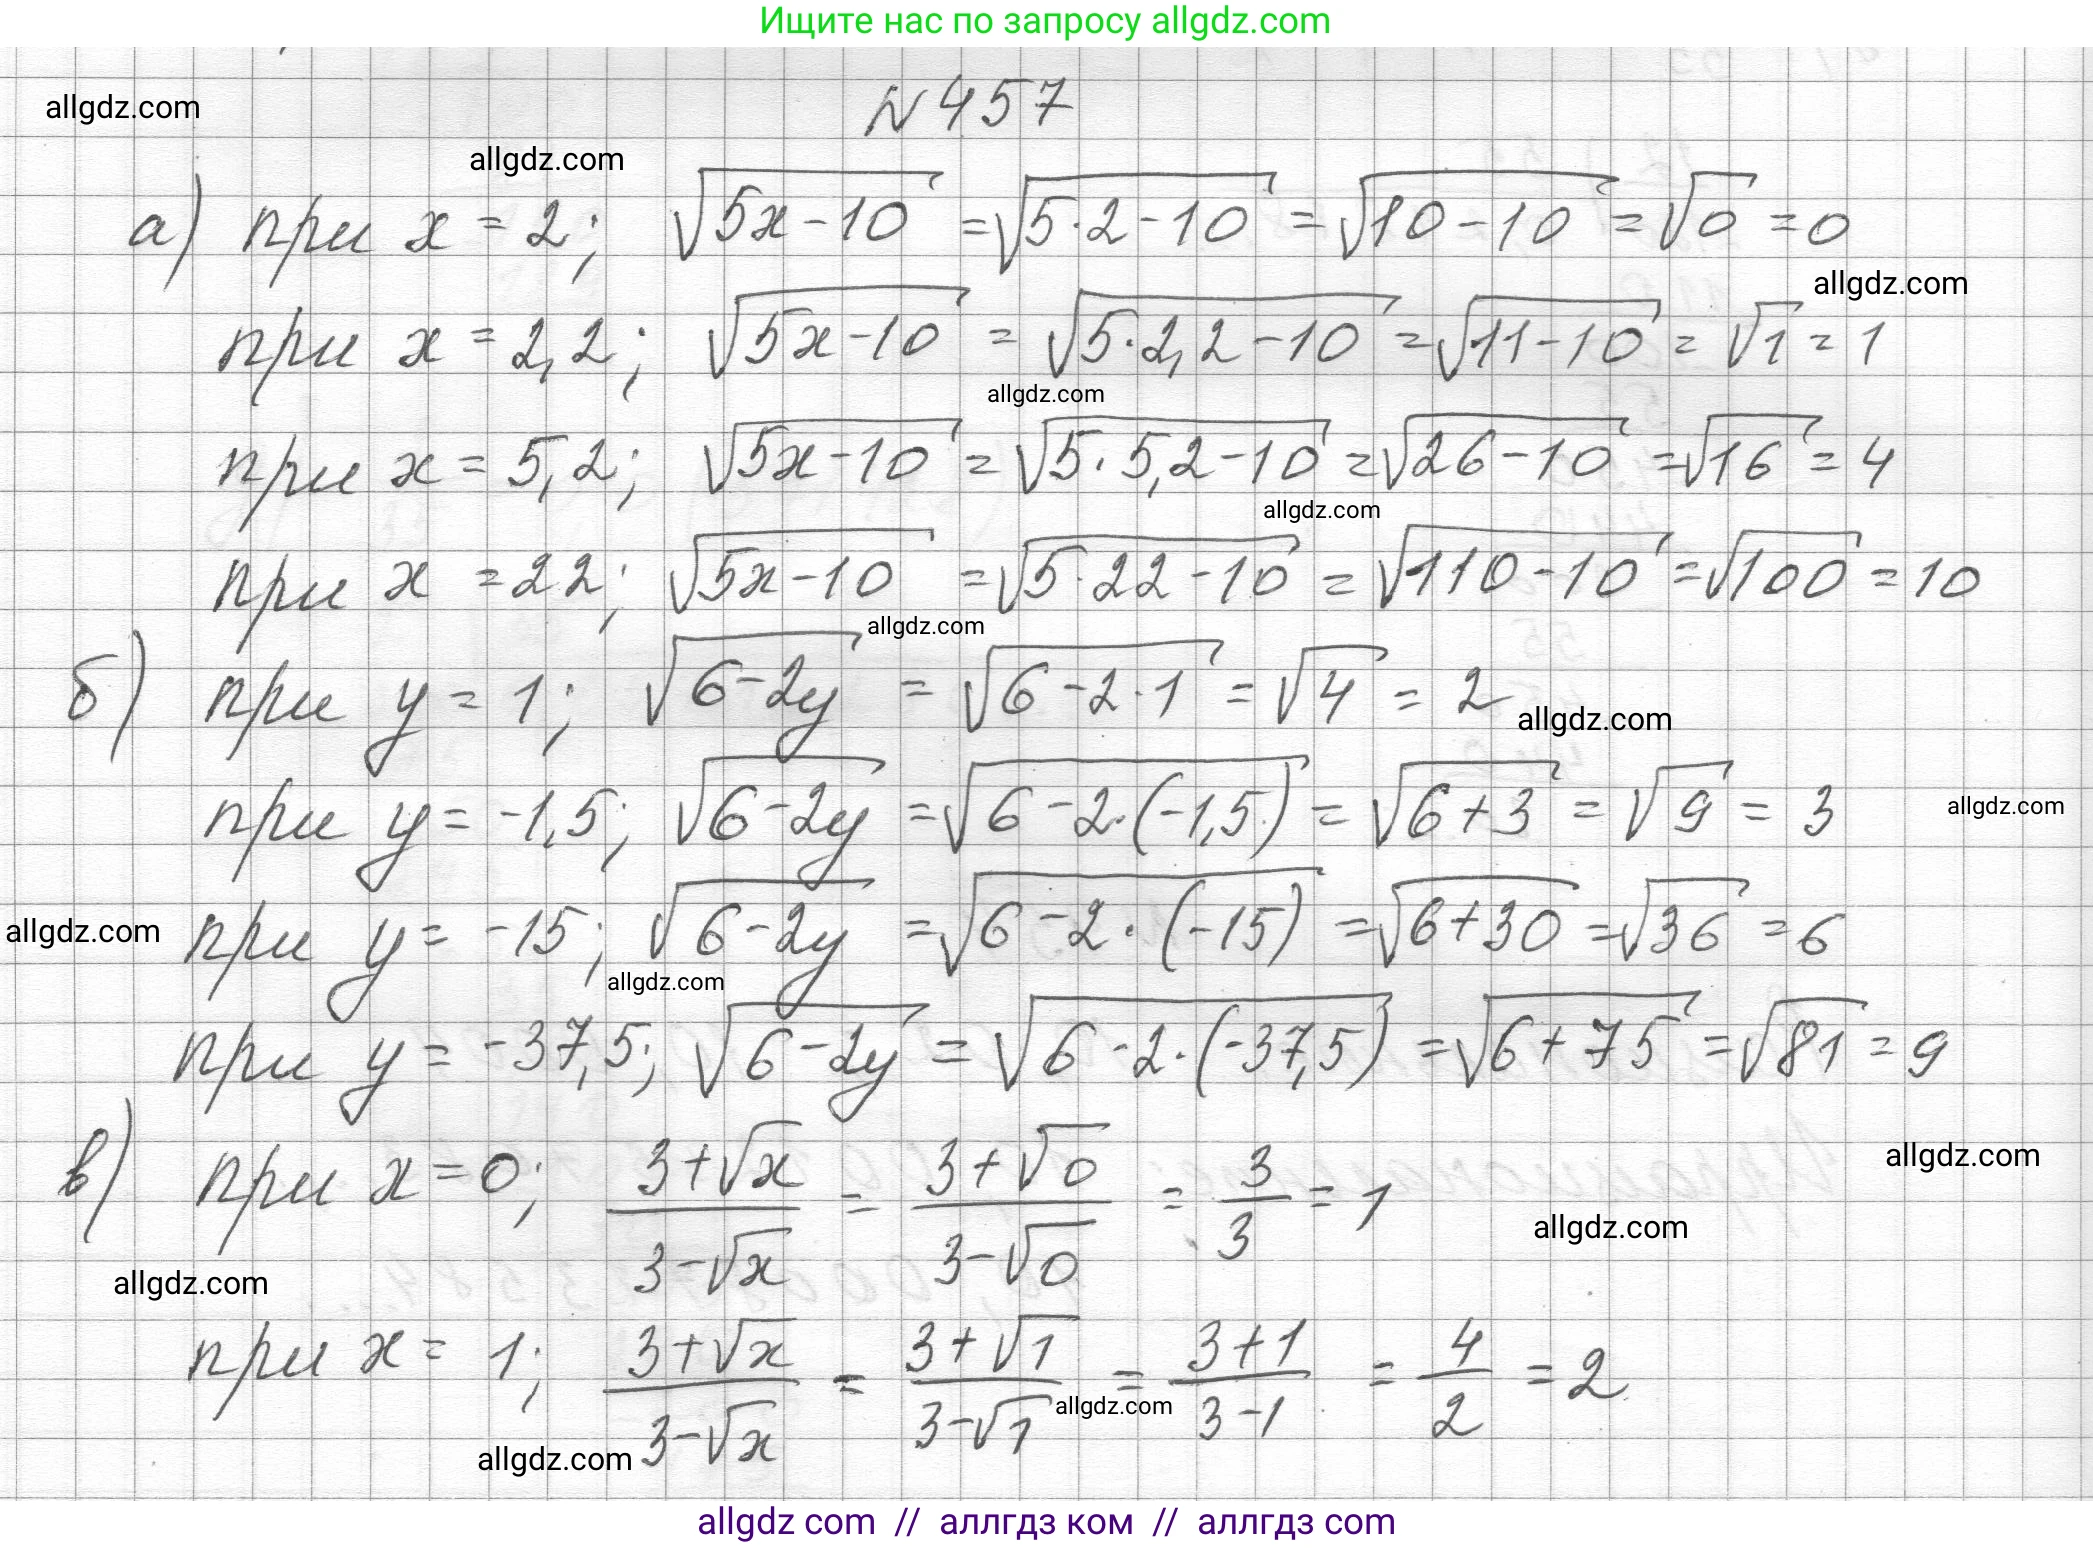 Ищите нас по запросу allgdz.com
N 457
allgdz.com
allgdz.com
а) при x = 2; √(5x-10) = √(5·2-10) = √(10-10) = √0 = 0
allgdz.com
при x = 2,2; √(5x-10) = √(5·2,2-10) = √(11-10) = √1 = 1
allgdz.com
при x = 5,2; √(5x-10) = √(5·5,2-10) = √(26-10) = √16 = 4
allgdz.com
при x = 22; √(5x-10) = √(5·22-10) = √(110-10) = √100 = 10
allgdz.com
б) при y = 1; √(6-2y) = √(6-2·1) = √4 = 2
allgdz.com
при y = -1,5; √(6-2y) = √(6-2·(-1,5)) = √(6+3) = √9 = 3
allgdz.com
allgdz.com
при y = -15; √(6-2y) = √(6-2·(-15)) = √(6+30) = √36 = 6
allgdz.com
при y = -37,5; √(6-2y) = √(6-2·(-37,5)) = √(6+75) = √81 = 9
в) при x = 0; (3+√x)/(3-√x) = (3+√0)/(3-√0) = 3/3 = 1
allgdz.com
allgdz.com
allgdz.com
при x = 1; (3+√x)/(3-√x) = (3+√1)/(3-√1) = (3+1)/(3-1) = 4/2 = 2
allgdz.com
allgdz.com
allgdz com // аллгдз ком // аллгдз com